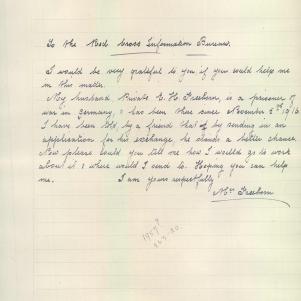 To the Red Cross Information Bureau.
I would be very grateful to you if you could help me
in this matter.
My husband Private E. H. Freeborn, is a prisoner of
war in Germany, & has been there since November 2nd 1916.
I have been told by a friend that by sending in an
application for his exchange, he stands a better chance.
Now please could you tell me how I would go to work
about it & where would I send to. Hoping you can help
me. I am yours respectfully
Mrs Freeborn